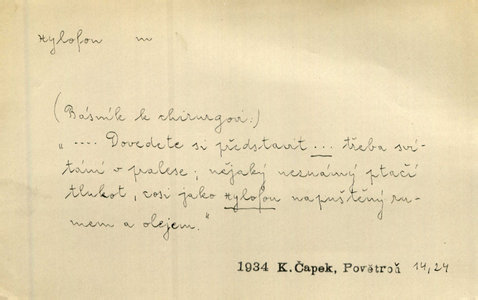 Xylofon m
(Básník k chirurgovi:)
".... Dovedete si představit ... třeba sví-
tání v pralese; nějaký neznámý ptačí
tlukot, cosi jako Xylofon napuštěný ru-
mem a olejem."
1934 K. Čapek, Povětroň 14,24